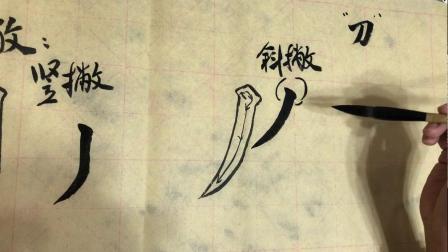 撇：
竖撇
斜撇
"刀"